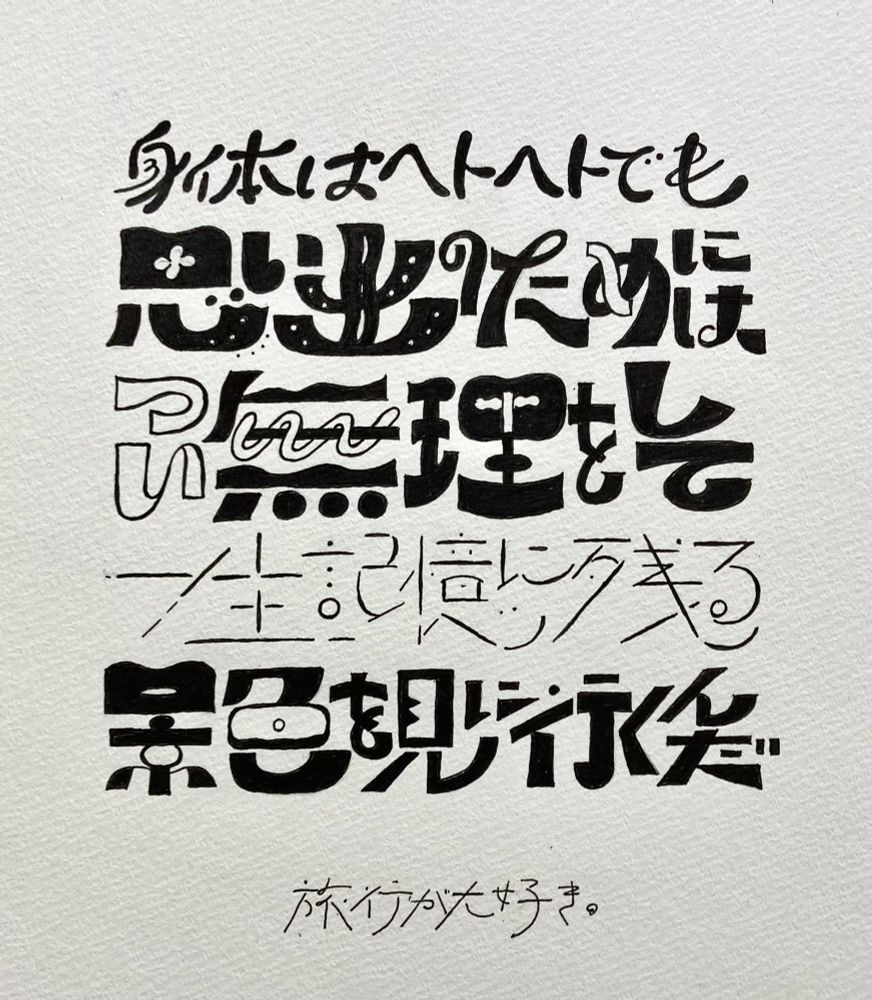 身体はヘトヘトでも
思い出のためには
つい無理をして
一生記憶に残る
景色を見に行くんだ
旅行が大好き。